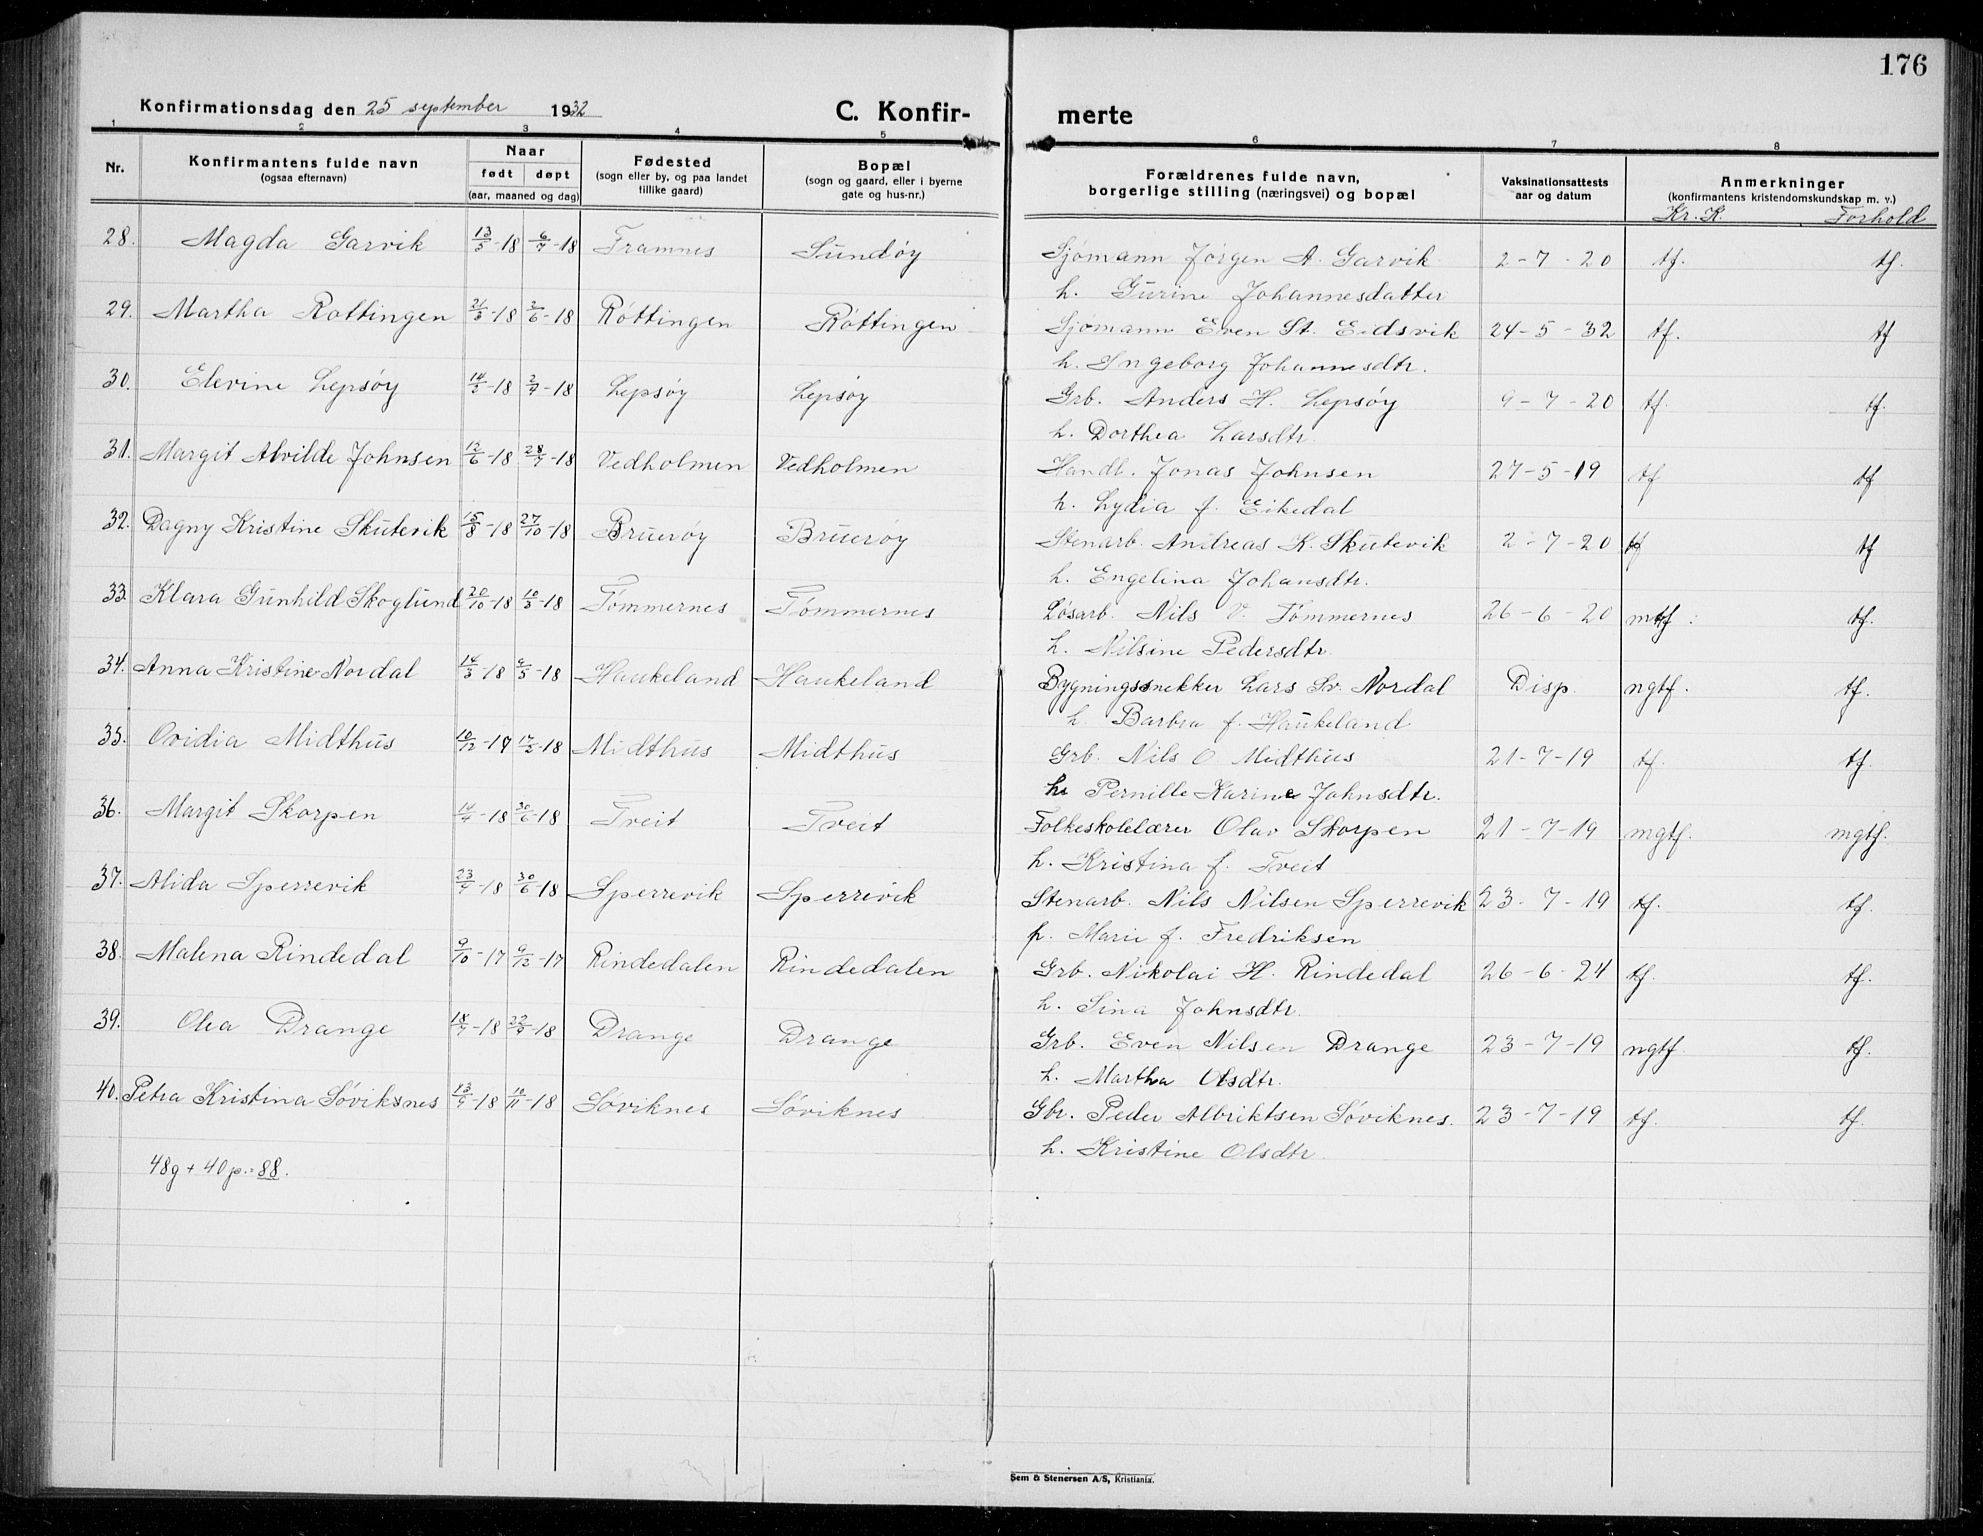 176
Konfirmationsdag den 25 september 1932
C. Konfir-
merte
1 2 3 4 5 6 7 8
Nr.
Konfirmantens fulde navn
(ogsaa efternavn)
Naar
født døpt
(aar, maaned og dag)
Fødested
(sogn eller by, og paa landet
tillike gaard)
Bopæl
(sogn og gaard, eller i byerne
gate og hus-nr.)
Forældrenes fulde navn,
borgerlige stilling (næringsvei) og bopæl
Vaksinationsattests
aar og datum
Anmerkninger
(konfirmantens kristendomskundskap m. v.)
Kr. K. Forhold
28. Magda Garvik 13/5-18 6/7-18 Framnes Sundøy Sjømann Jørgen A. Garvik 2-7-20 tf. tf.
h. Gurine Johannesdatter
29. Martha Rottingen 21/3-18 2/6-18 Røttingen Røttingen Sjømann Even St. Eidsvik 24-5-32 tf. tf
h. Ingeborg Johannesdtr.
30. Elevine Lepsøy 14/3-18 Lepsøy Lepsøy Grb. Anders H. Lepsøy 9-7-20 tf. tf.
h. Dorthea Larsdtr.
31. Margit Alvilde Johnsen 12/6-18 28/7-18 Vedholmen Vedholmen Handl. Jonas Johnsen 27-5-19 tf tf
h. Lydia f. Eikedal
32. Dagny Kristine Skutevik 15/8-18 27/10-18 Bruerøy Bruerøy Stenarb. Andreas K. Skutevik 2-7-20 tf tf
h. Engelina Johansdtr.
33. Klara Gunhild Skoglund 20/10-18 10/3-18 Tømmernes Tømmernes Løsarb. Nils V. Tømmernes 26-6-20 mtf. tf.
h. Nilsine Pedersdtr.
34. Anna Kristine Nordal 14/3-18 Haukeland Haukeland Bygningssnekker Lars Sv. Nordal Disp. ngtf. tf.
h. Barbra f. Haukeland
35. Ovidia Midthus 10/12-17 17/3-18 Midthus Midthus Grb. Nils O Midthus 21-7-19 tf. tf.
h. Pernille Karine Johnsdtr.
36. Margit Skorpen 14/4-18 30/6-18 Tveit Tveit Folkeskolelærer Olav Skorpen 21-7-19 mgtf. mgtf.
h. Kristina f. Tveit
37. Alida Sperrevik 30/6-18 Sperrevik Sperrevik Stenarb. Nils Nilsen Sperrevik 23-7-19 tf. tf.
p. Marie f. Fredriksen
38. Malena Rindedal 9/10-17 9/12-17 Rindedalen Rindedalen Grb. Nikolai H. Rindedal 26-6-24 tf. tf.
h. Sina Johnsdtr.
39. Olea Drange Drange Drange Grb. Even Nilsen Drange 23-7-19 ngtf. tf.
h. Martha Olsdtr.
40. Petra Kristina Søviksnes 13/9-18 10/11-18 Søviknes Søviknes Gbr. Peder Albriktsen Søviknes. 23-7-19 tf. tf.
h. Kristine Olsdtr.
48g + 40p. = 88.
Sem & Stenersen A/S, Kristiania.